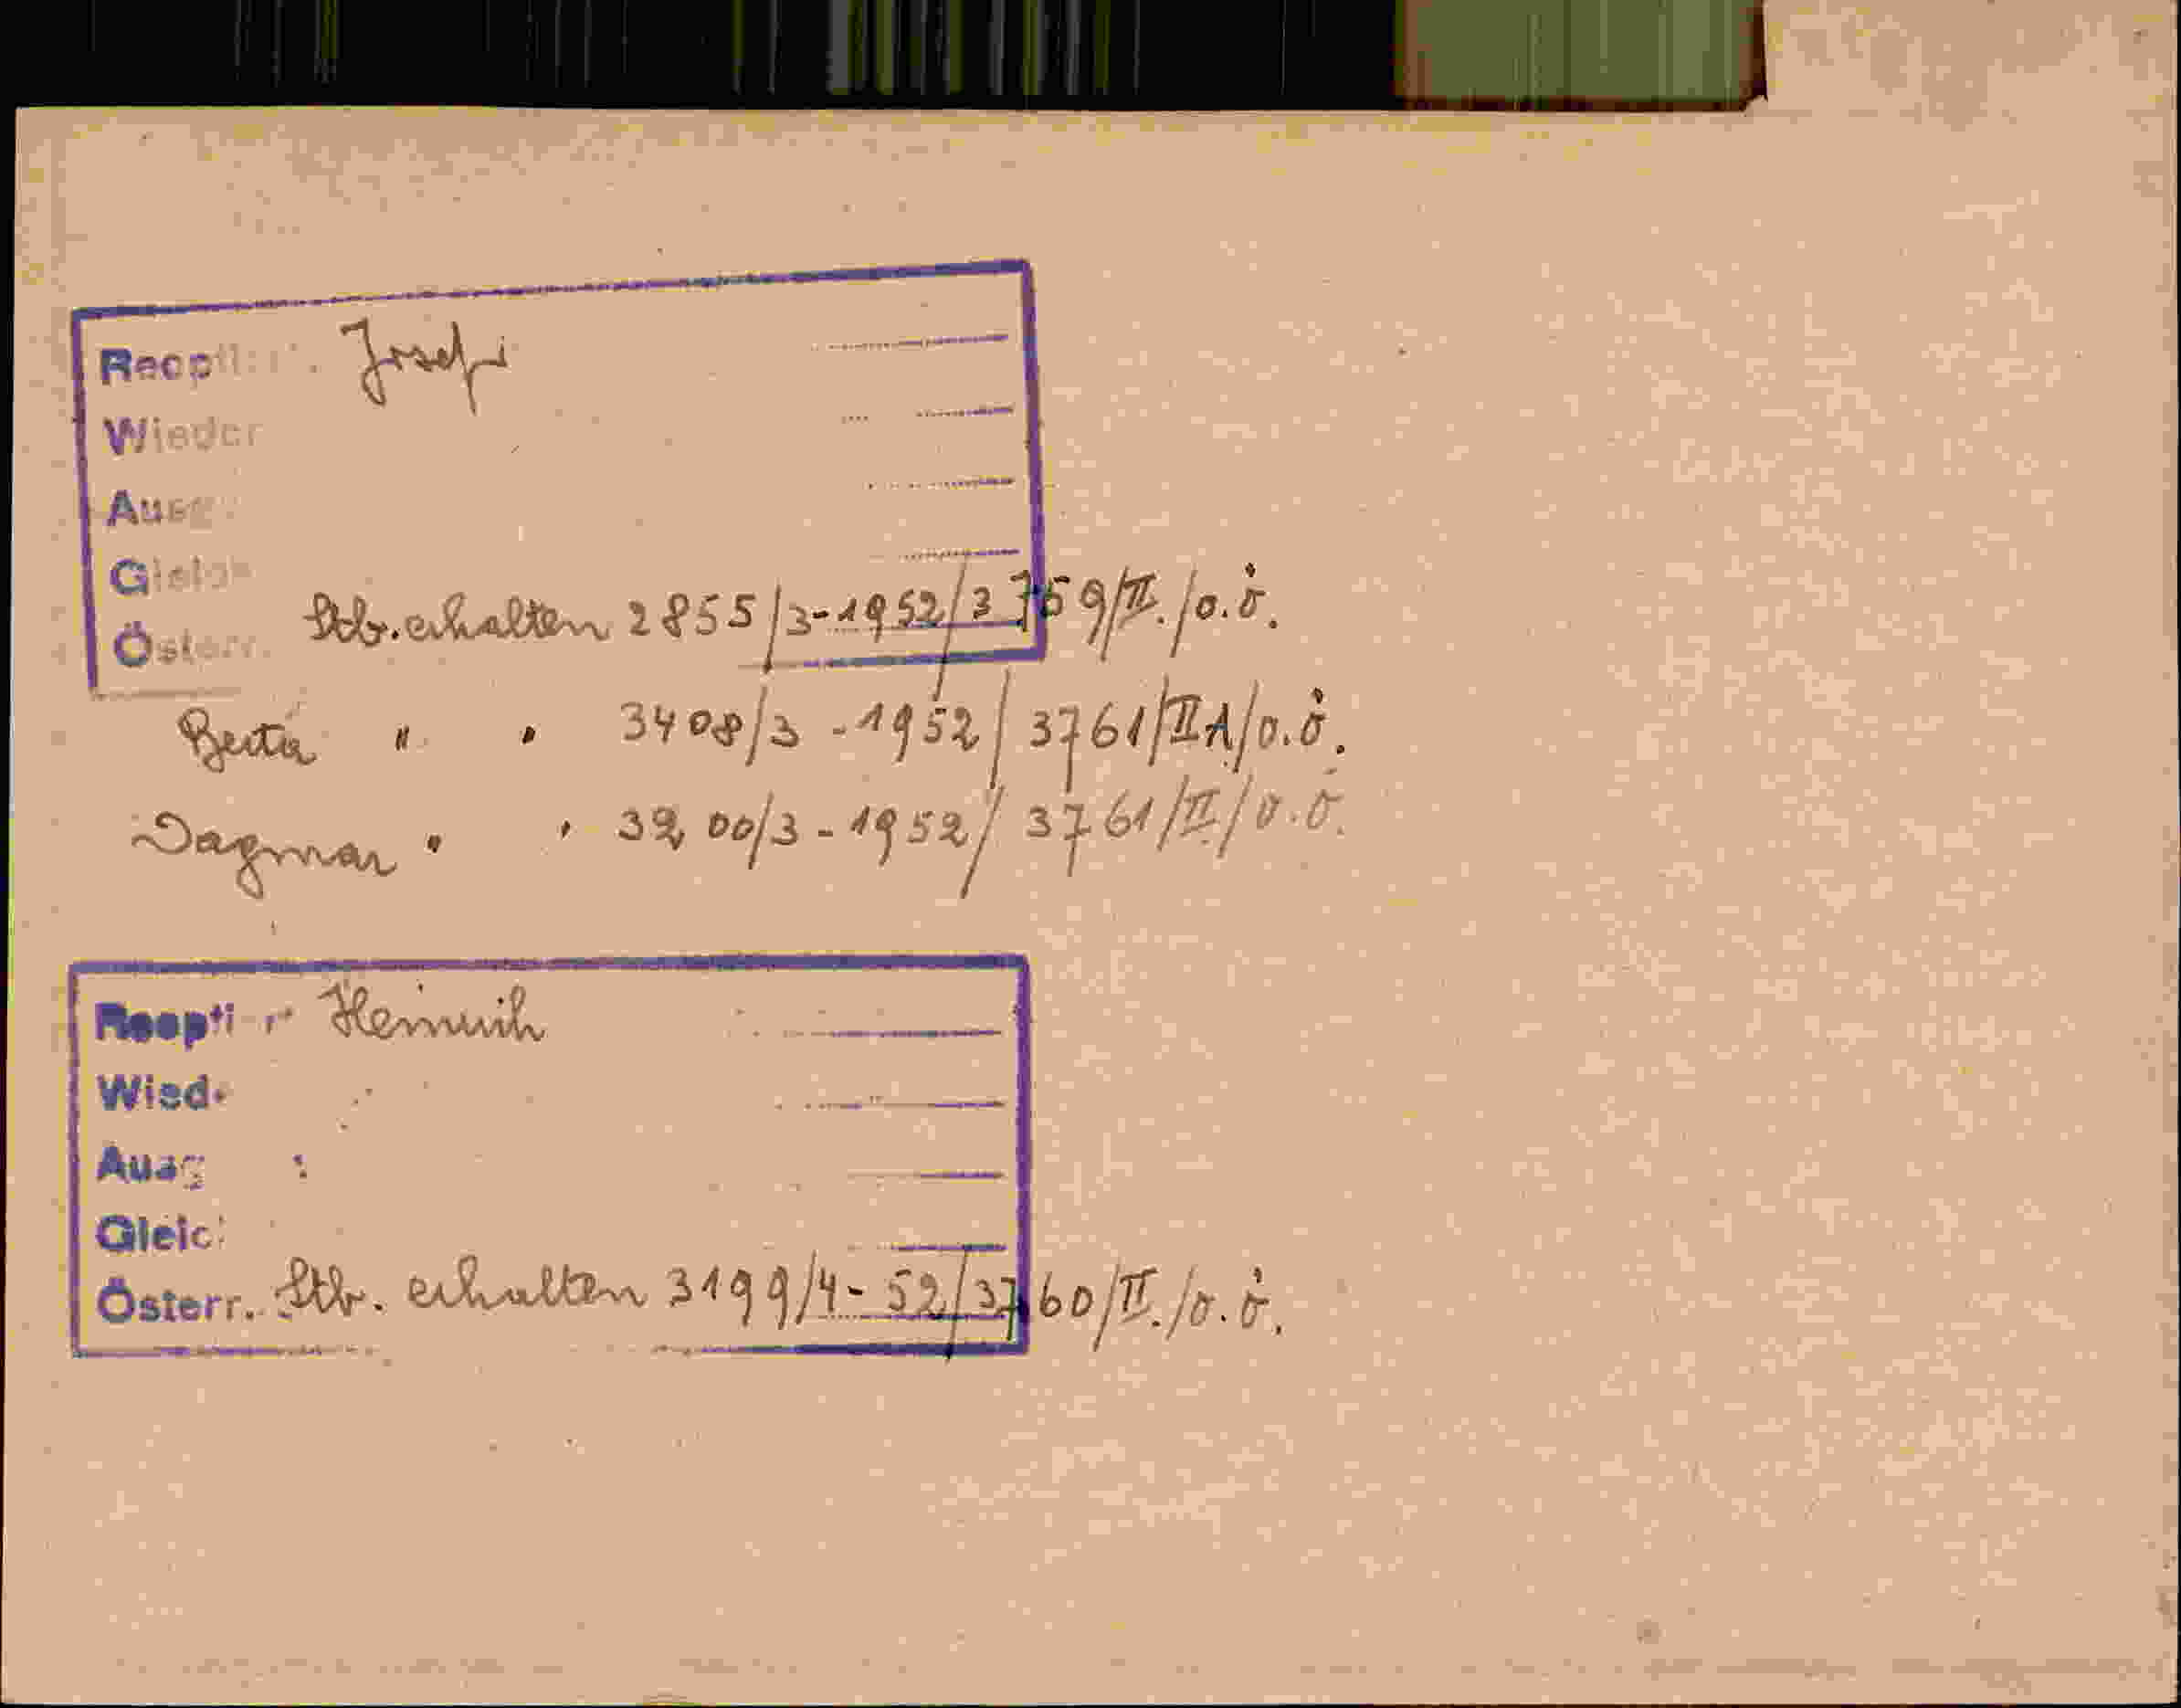 Reoptiert Josef
Wieder
Ausg
Gleich
Österr. Stb. erhalten 2855/3-1952/3759/II./o.ö.
Berta " " 3408/3-1952/3761/IIA/o.ö.
Dagmar " " 3200/3-1952/3761/II/o.ö.
Reoptiert Heinrich
Wied
Ausg
Gleic
Österr. Stb. erhalten 3199/4-52/3760/II./o.ö.